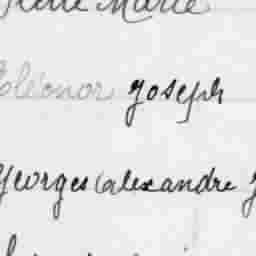 Marie
Eléonor Joseph
Georges Calexandre